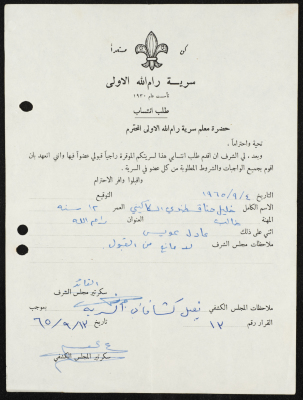 كن مستعداً
سرية رام الله الاولى
تأسست عام ١٩٢٠
طلب انتساب
حضرة معلم سرية رام الله الاولى المحترم
تحية واحتراماً ،
وبعد ، لي الشرف ان اقدم طلب انتسابي هذا لسريتكم الموقرة راجياً قبولي عضواً فيها وانني اتعهد بان
اقوم بجميع الواجبات والشروط المطلوبة من كل عضو في السرية .
واقبلوا وافر الاحترام
التاريخ ٤/٩/١٩٦٥ التوقيع
الاسم الكامل خليل العمر ١٣ سنة
المهنة طالب العنوان رام الله
اثنى على ذلك عادل عويس
ملاحظات مجلس الشرف لا مانع من القبول
القائد
سكرتير مجلس الشرف
ملاحظات المجلس الكشفي يقبل كشافاً في السرية بموجب
القرار رقم ١٣ تاريخ ١٣/٩/٦٥
سكرتير المجلس الكشفي